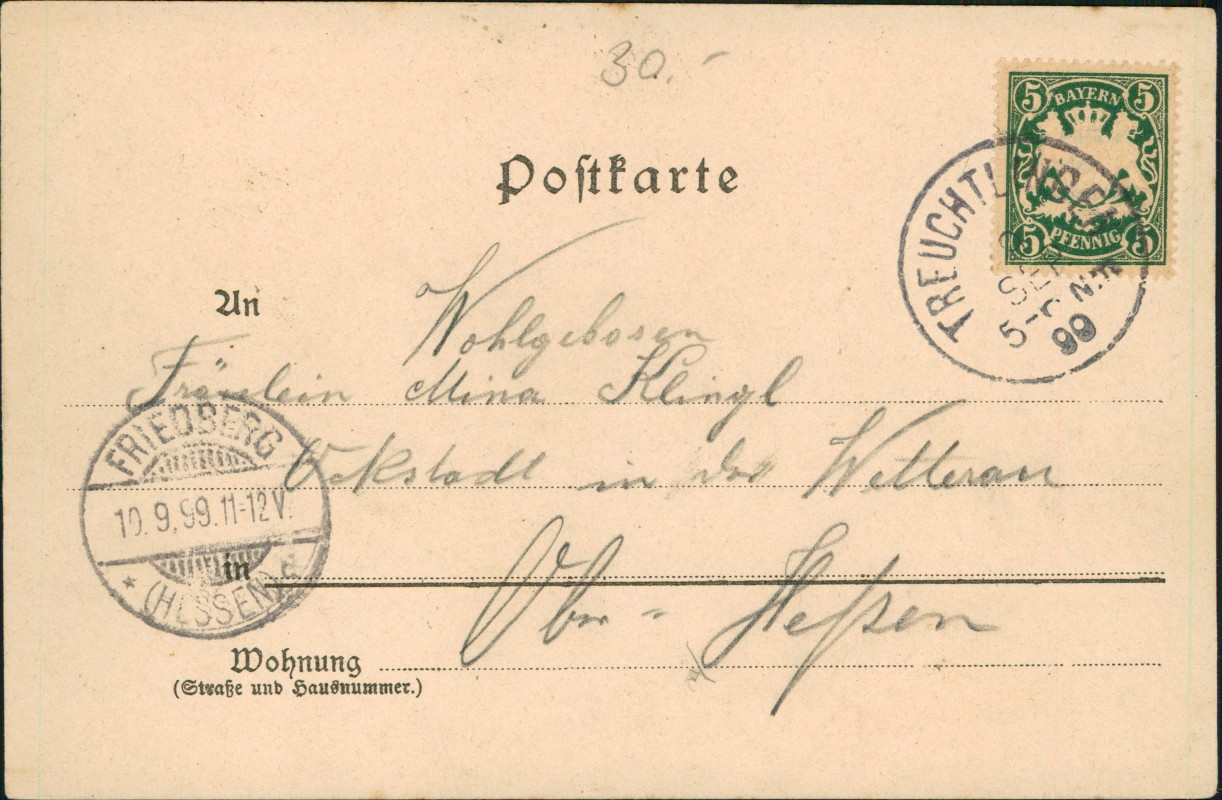 30.-
5 BAYERN 5
5 PFENNIG 5
TREUCHTLINGEN
SEP
5-6 N.
99
Postkarte
An
Wohlgeboren
Fräulein Mina Klingl
Ockstadt in der Wetterau
FRIEDBERG
10.9.99.11-12V.
(HESSEN)
in
Ober-Heßen
Wohnung
(Straße und Hausnummer.)